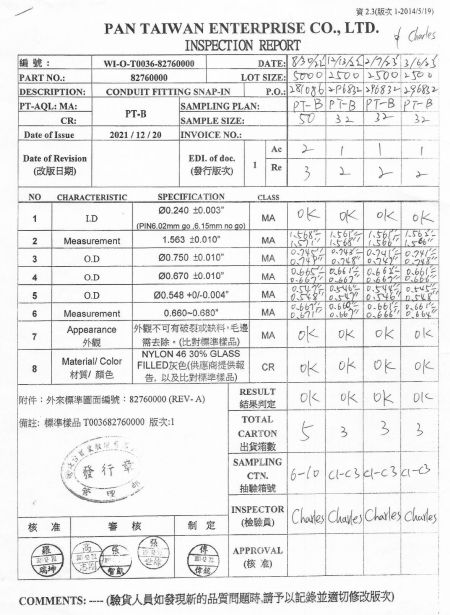 資 2.3(版次 1-2014/5/19)
PAN TAIWAN ENTERPRISE CO., LTD.
Charles
INSPECTION REPORT
編 號： WI-O-T0036-82760000 DATE: 8/30/22 12/13/22 2/7/23 3/6/23
PART NO.: 82760000 LOT SIZE: 5000 2500 2500 2500
DESCRIPTION: CONDUIT FITTING SNAP-IN P.O.: 281086 296832 296832 296832
PT-AQL: MA: PT-B SAMPLING PLAN: PT-B PT-B PT-B PT-B
CR: SAMPLE SIZE: 50 32 32 32
Date of Issue 2021 / 12 / 20 INVOICE NO.:
Date of Revision (改版日期) EDI. of doc. (發行版次) 1 Ac 2 1 1 1
Re 3 2 2 2
NO CHARACTERISTIC SPECIFICATION CLASS
1 I.D Ø0.240 ±0.003" (PIN6.02mm go ,6.15mm no go) MA OK OK OK OK
2 Measurement 1.563 ±0.010" MA 1.568"~1.571" 1.561"~1.568" 1.561"~1.566"
3 O.D Ø0.750 ±0.010" MA 0.745"~ 0.743"~0.748" 0.741"~0.747" 0.741"~0.748"
4 O.D Ø0.670 ±0.010" MA 0.665"~0.667" 0.661"~0.667" 0.661"~0.666"
5 O.D Ø0.548 +0/-0.004" MA 0.547"~0.548" 0.546"~0.547" 0.545"~
6 Measurement 0.660~0.680" MA 0.667"~0.671" 0.667" 0.661"~0.666" 0.661"~
7 Appearance 外觀 外觀不可有破裂或缺料,毛邊需去除。(比對標準樣品) MA OK OK OK OK
8 Material/ Color 材質/ 顏色 NYLON 46 30% GLASS FILLED灰色(供應商提供報告, 以及比對標準樣品) CR OK OK OK OK
附件：外來標準圖面編號：82760000 (REV- A)
RESULT 結果判定 OK OK OK OK
備註: 標準樣品 T003682760000 版次:1
TOTAL CARTON 出貨箱數 5 3 3 3
發行章
管理部
SAMPLING CTN. 抽驗箱號 6-10 C1-C3 C1-C3 C1-C3
INSPECTOR (檢驗員) Charles Charles Charles Charles
核 准 審 核 制 定
APPROVAL (核 准)
COMMENTS: ---- (驗貨人員如發現新的品質問題時,請予以記錄並適切修改版次)